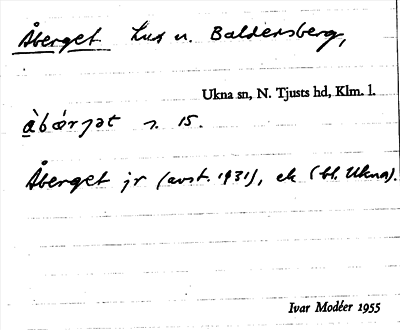 Åberget hus u. Baldersberg,
Ukna sn, N. Tjusts hd, Klm. l.
àbǽrjət s. 15.
Åberget jr (avst. 1931), ek (bl. Ukna).
Ivar Modéer 1955